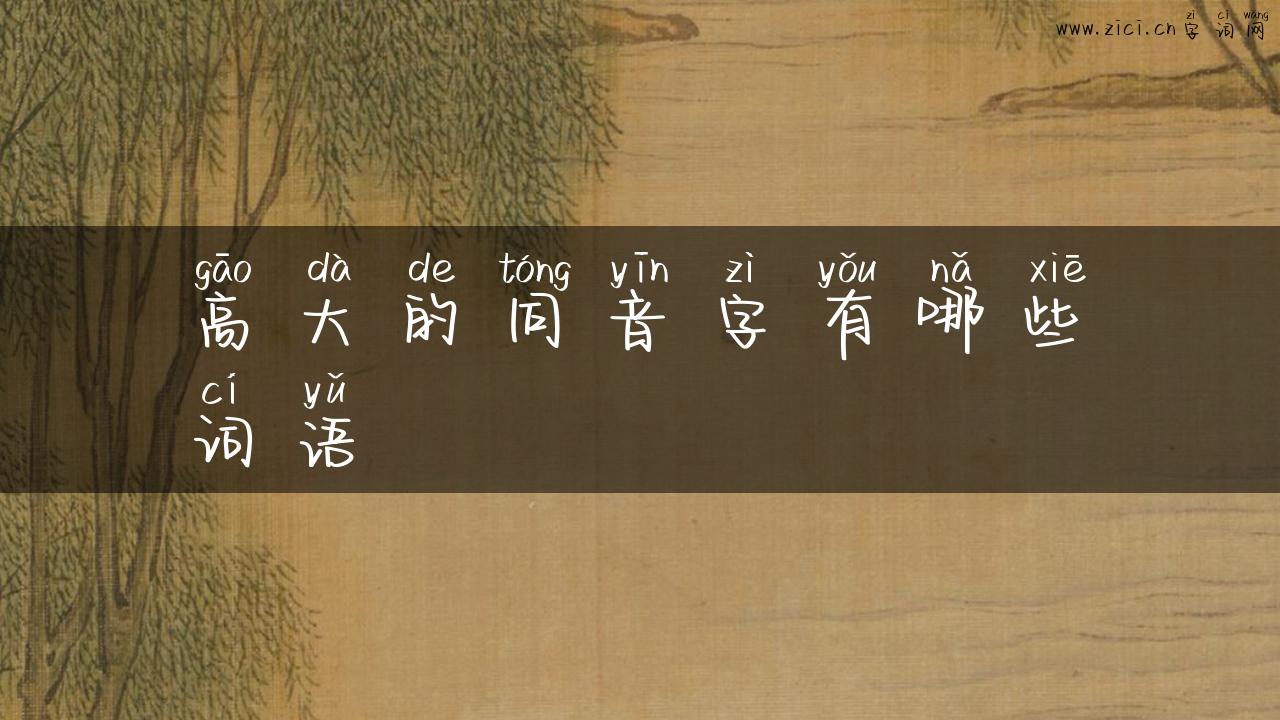 zì cí wǎng
www.zici.cn字词网
gāo dà de tóng yīn zì yǒu nǎ xiē
高大的同音字有哪些
cí yǔ
词语